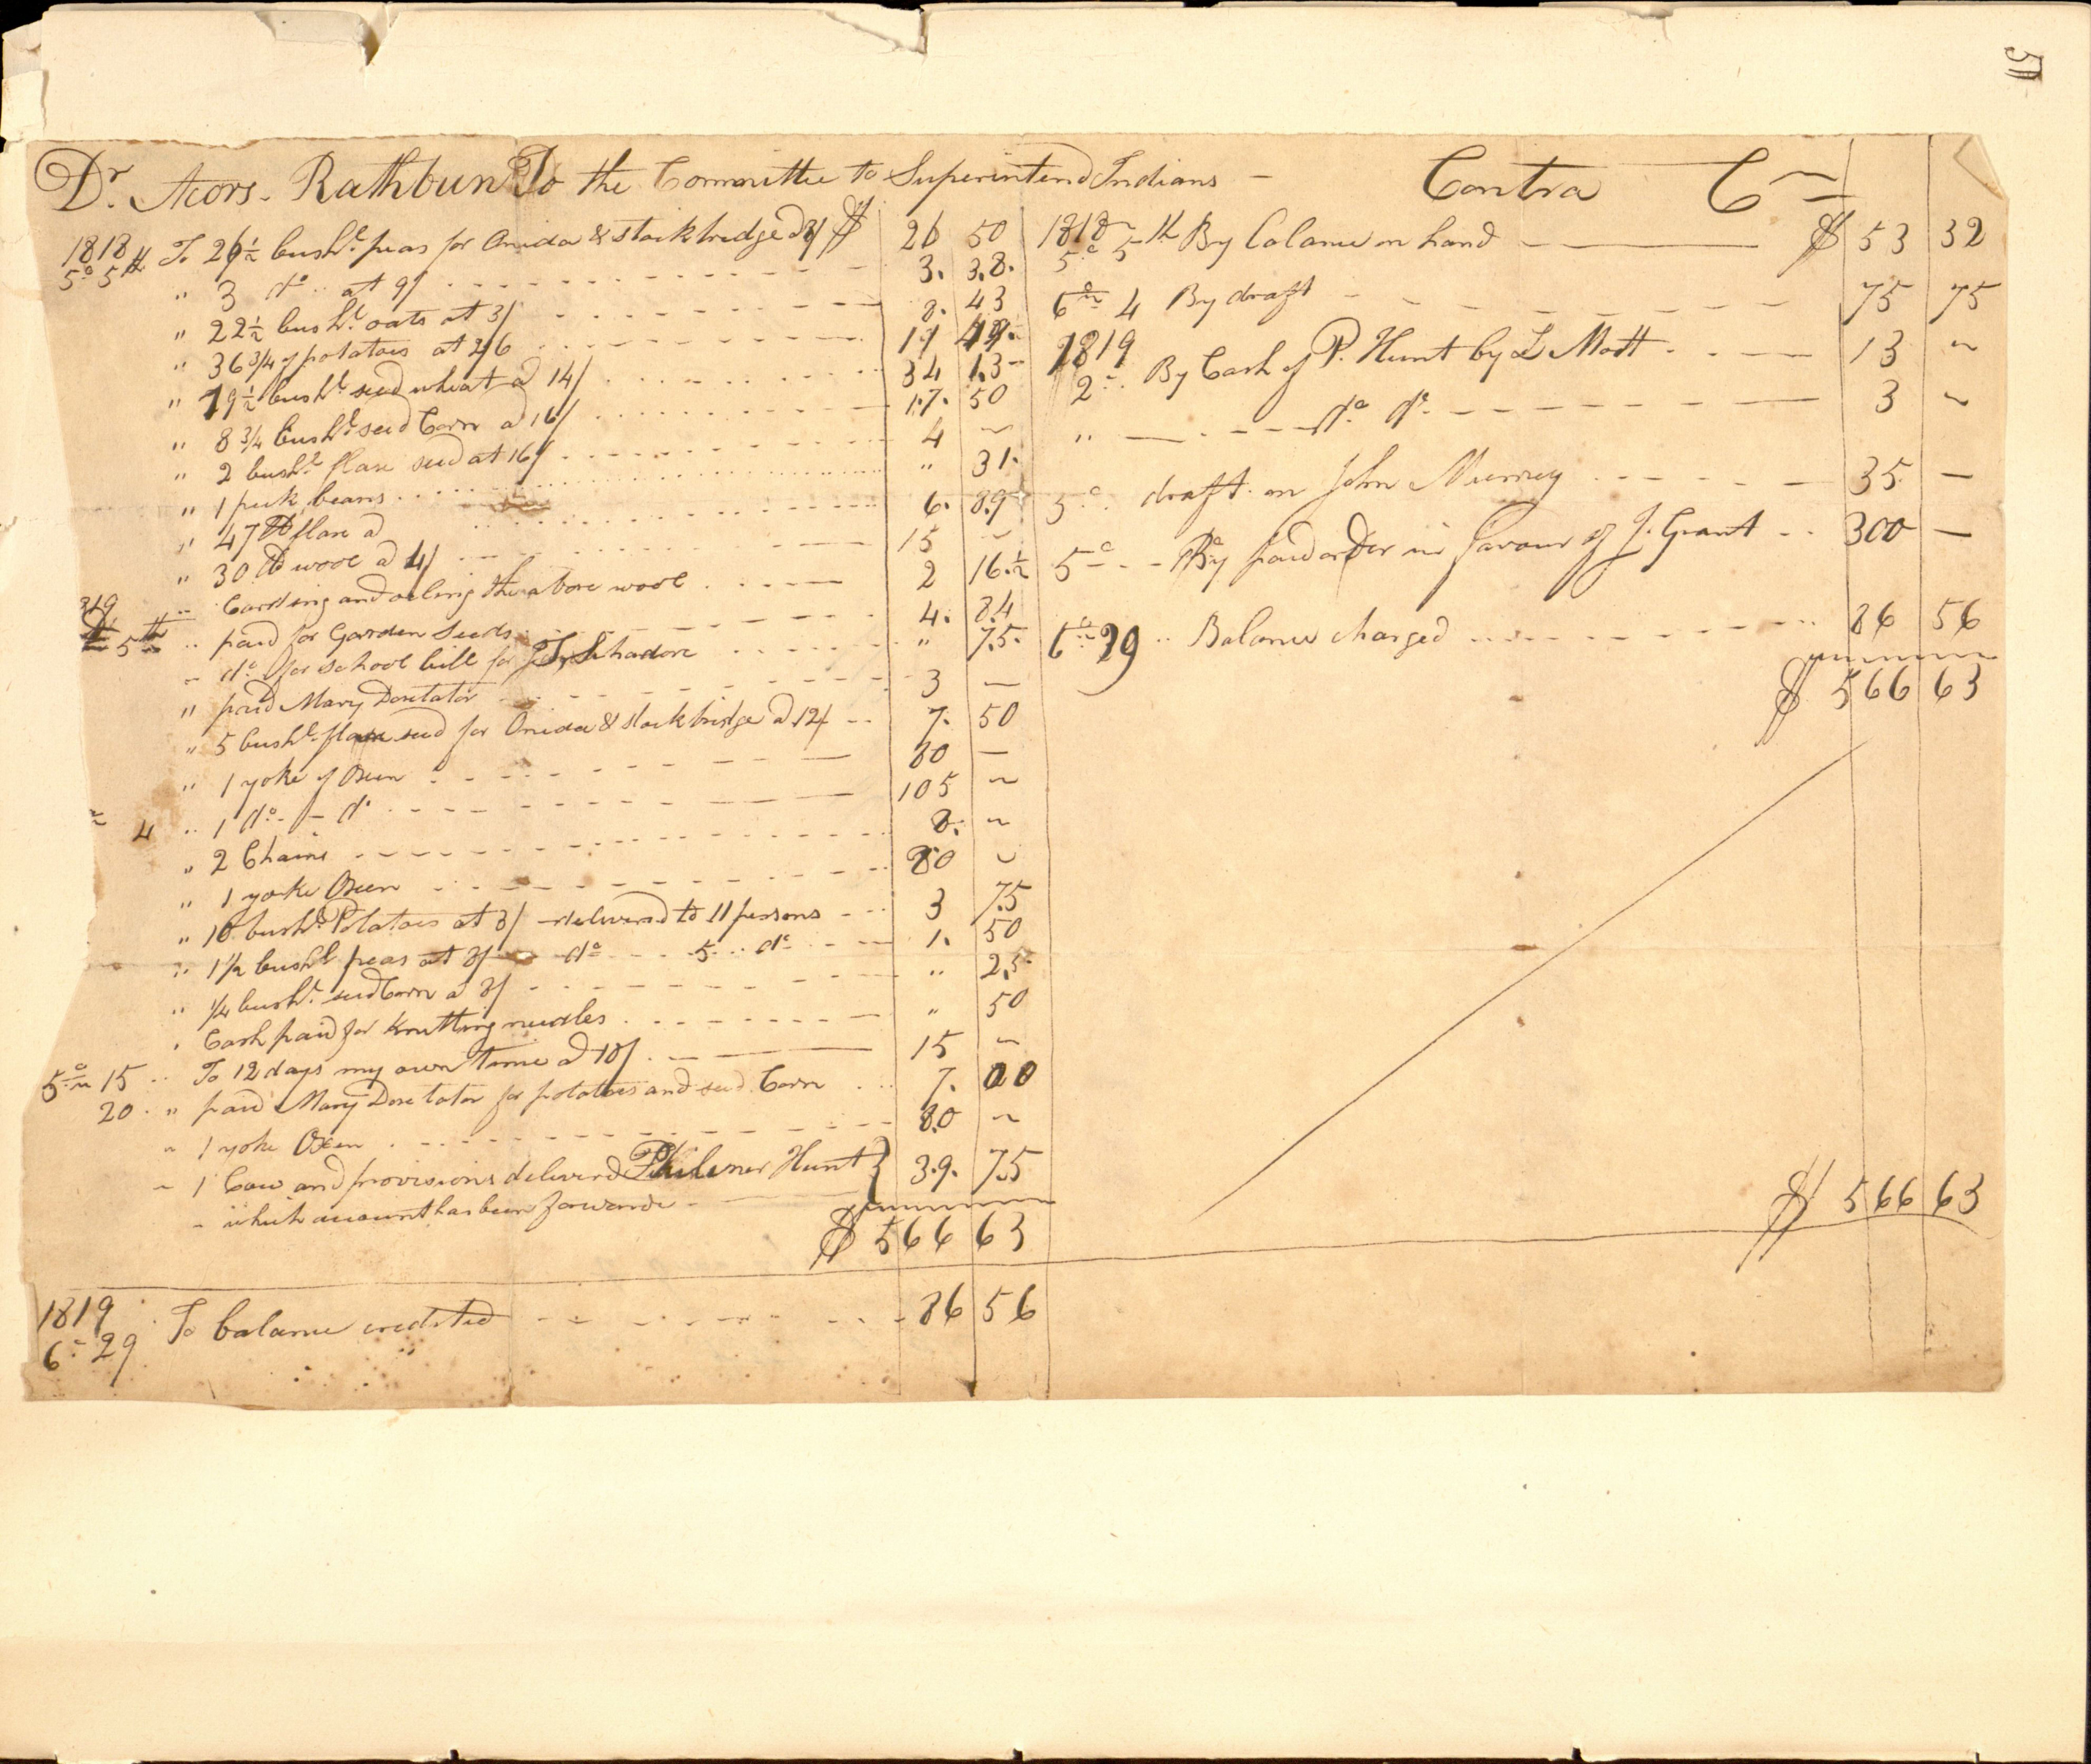 51
Dr. Acors. Rathbun To the Committee to Superintend Indians - Contra Cr
1818 5o 5th To 26½ bushls. peas for Onida & Stockbridge a 8/ $ 26 50
" 3 do .. at 9/ 3. 38.
" 22½ bushl. oats at 3/ 8. 43
" 36 3/4 of potatoes at 2/6 11 49
" 19½ bushl. seed wheat a 14/ 34 13
" 8 3/4 bushl. seed Corn a 16/ 17. 50
" 2 bushl. flax seed at 16/ 4 ~
" 1 peck beans " 31.
" 47 lb flax a 6. 89
" 30 lb wool a 4/ 15 ~
" Carding and oeling the above wool 2 16.½
819 5th " paid for Garden Seeds 4. 84
- do for school bill for Schadore " 75.
" paid Mary Doxtator 3 —
" 5 bushl. flax seed for Onida & stockbridge a 12/ 7. 50
" 1 yoke of Oxen 80 —
4 " 1 do. - do 105 ~
" 2 Chains 8. ~
" 1 yoke Oxen 80 ~
" 10 bushl. Potatoes at 3/ - delivered to 11 persons 3 75
" 1½ bushl peas at 8/ do 5 do 1. 50
" ¼ bushl. seed Corn a 8/ " 25
" Cash paid for Knitting needles " 50
5o 15 .. To 12 days my own time a 10/ 15 ~
20 . " paid Mary Doxtator for potatoes and seed Corn 7. 00
" 1 yoke Oxen 80 ~
- 1 Cow and provisions delivered Philener Hunt } 39. 75
- which account has been forwarde
$ 566 63
1819 6- 29 To balance credited 86 56
1818 5o 5th By balance on hand $ 53 32
6o 4 By draft 75 75
1819 2- By Cash of P. Hunt by L Mott 13 ~
" do do 3 ~
5o draft on John Murrey 35. —
5o - By paid order in favour of J. Grant 300 —
6o 29 .. Balance charged 86 56
$ 566 63
$ 566 63